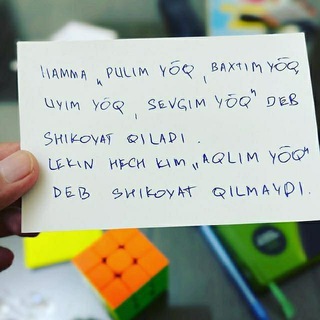 HAMMA „PULIM YŌQ, BAXTIM YŌQ,
UYIM YŌQ, SEVGIM YŌQ" DEB
SHIKOYAT QILADI.
LEKIN HECH KIM „AQLIM YŌQ"
DEB SHIKOYAT QILMAYDI.